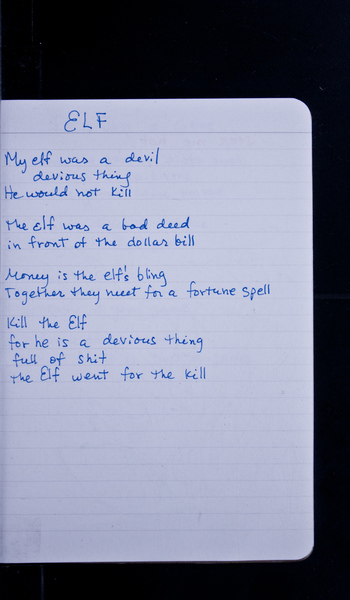 ELF
My elf was a devil
devious thing
He would not kill
The elf was a bad deed
in front of the dollar bill
Money is the elf's bling
Together they meet for a fortune spell
Kill the Elf
for he is a devious thing
full of shit
The Elf went for the kill